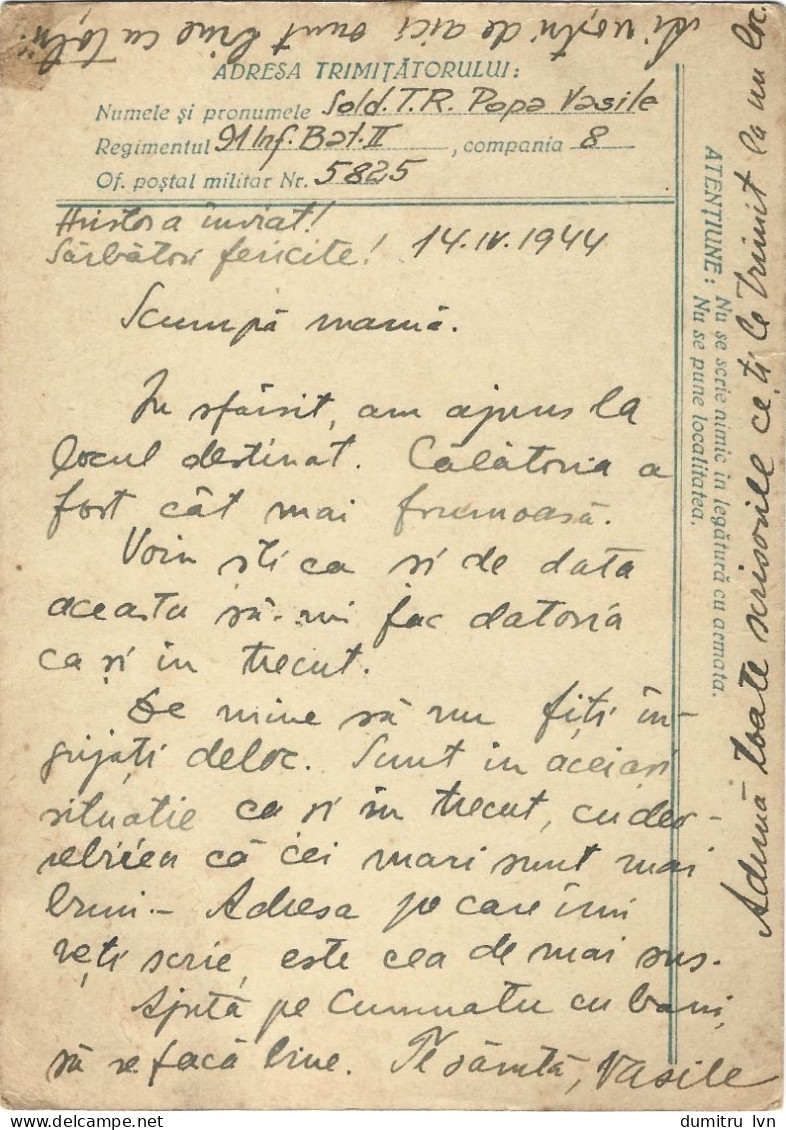 Ai noștri de aici sunt bine cu toții.
ADRESA TRIMIȚĂTORULUI:
Numele și pronumele Sold. T.R. Popa Vasile
Regimentul 91 Inf. Bat. II, compania 8
Of. poștal militar Nr. 5825
Hristos a înviat!
Sărbători fericite! 14.IV.1944
Scumpă mamă.
In sfârsit, am ajuns la
locul destinat. Călătoria a
fost cât mai frumoasă.
Voiu ști ca și de data
aceasta să-mi fac datoria
ca și in trecut.
De mine să nu fiți în-
grijați deloc. Sunt in aceiași
situatie ca și in trecut, cu deo-
sebirea că cei mari sunt mai
buni.- Adresa pe care îmi
veți scrie, este cea de mai sus.
Ajută pe Cumnatu cu bani,
să se facă bine. Te sărută, Vasile
ATENȚIUNE: Nu se scrie nimic in legătură cu armata.
Nu se pune localitatea.
Adună toate scrisorile ce ți le trimit la un loc.
dumitru lvn